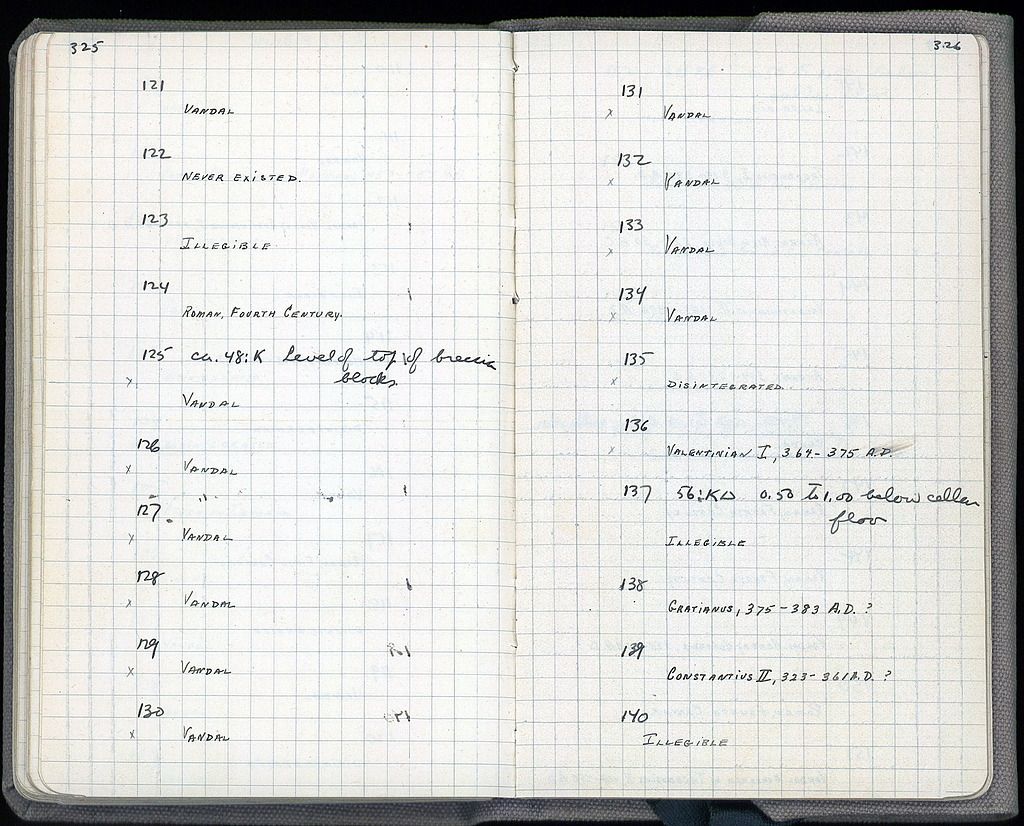 325
121
VANDAL
122
NEVER EXISTED.
123
ILLEGIBLE
124
ROMAN, FOURTH CENTURY.
125 ca. 48:K level of top of breccia
blocks.
x
VANDAL
126
x VANDAL
127.
x VANDAL
128
x VANDAL
129
x VANDAL
130
x VANDAL
326
131
x VANDAL
132
x VANDAL
133
x VANDAL
134
x VANDAL
135
x DISINTEGRATED.
136
x VALENTINIAN I, 364-375 A.D.
137 56:KΔ 0.50 to 1.00 below cellar
floor
ILLEGIBLE
138
GRATIANUS, 375-383 A.D. ?
139
CONSTANTIUS II, 323-361 A.D. ?
140
ILLEGIBLE